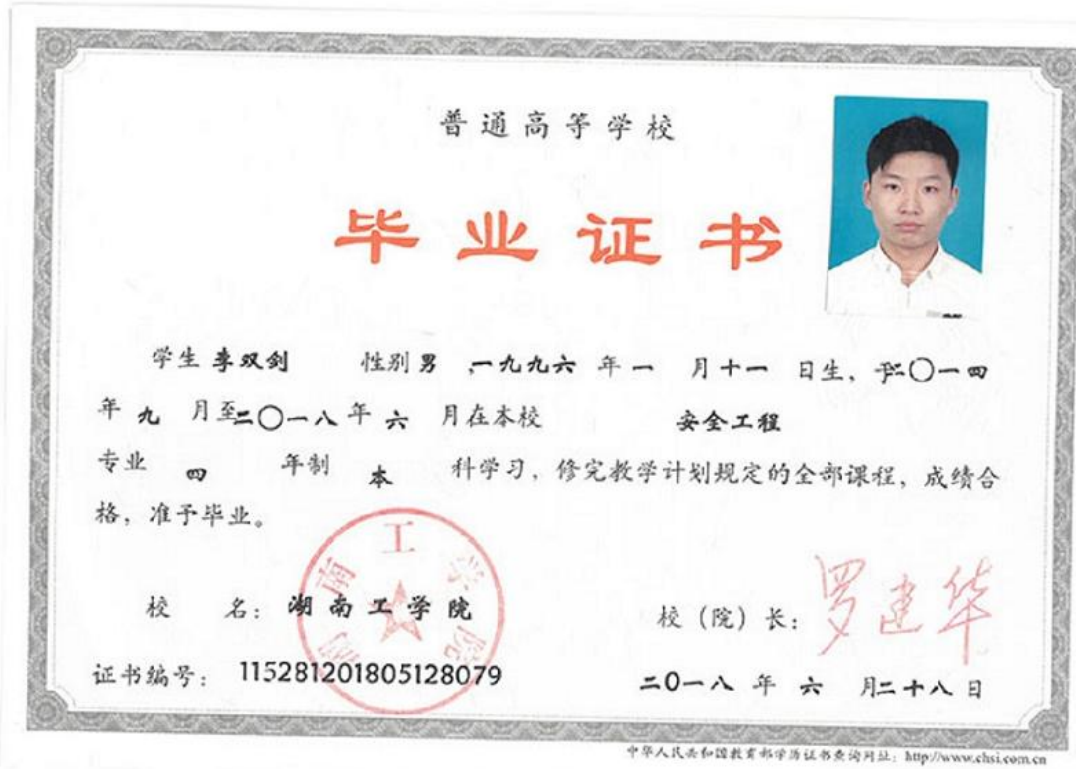 普通高等学校
毕业证书
学生 李双剑 性别 男 ,一九九六 年 一 月 十一 日生,于二〇一四
年 九 月至二〇一八 年 六 月在本校 安全工程
专业 四 年制 本 科学习,修完教学计划规定的全部课程,成绩合
格,准予毕业。
湖南工学院
校 名:湖南工学院
校(院)长:罗建华
证书编号:115281201805128079
二〇一八 年 六 月二十八日
中华人民共和国教育部学历证书查询网址:http://www.chsi.com.cn